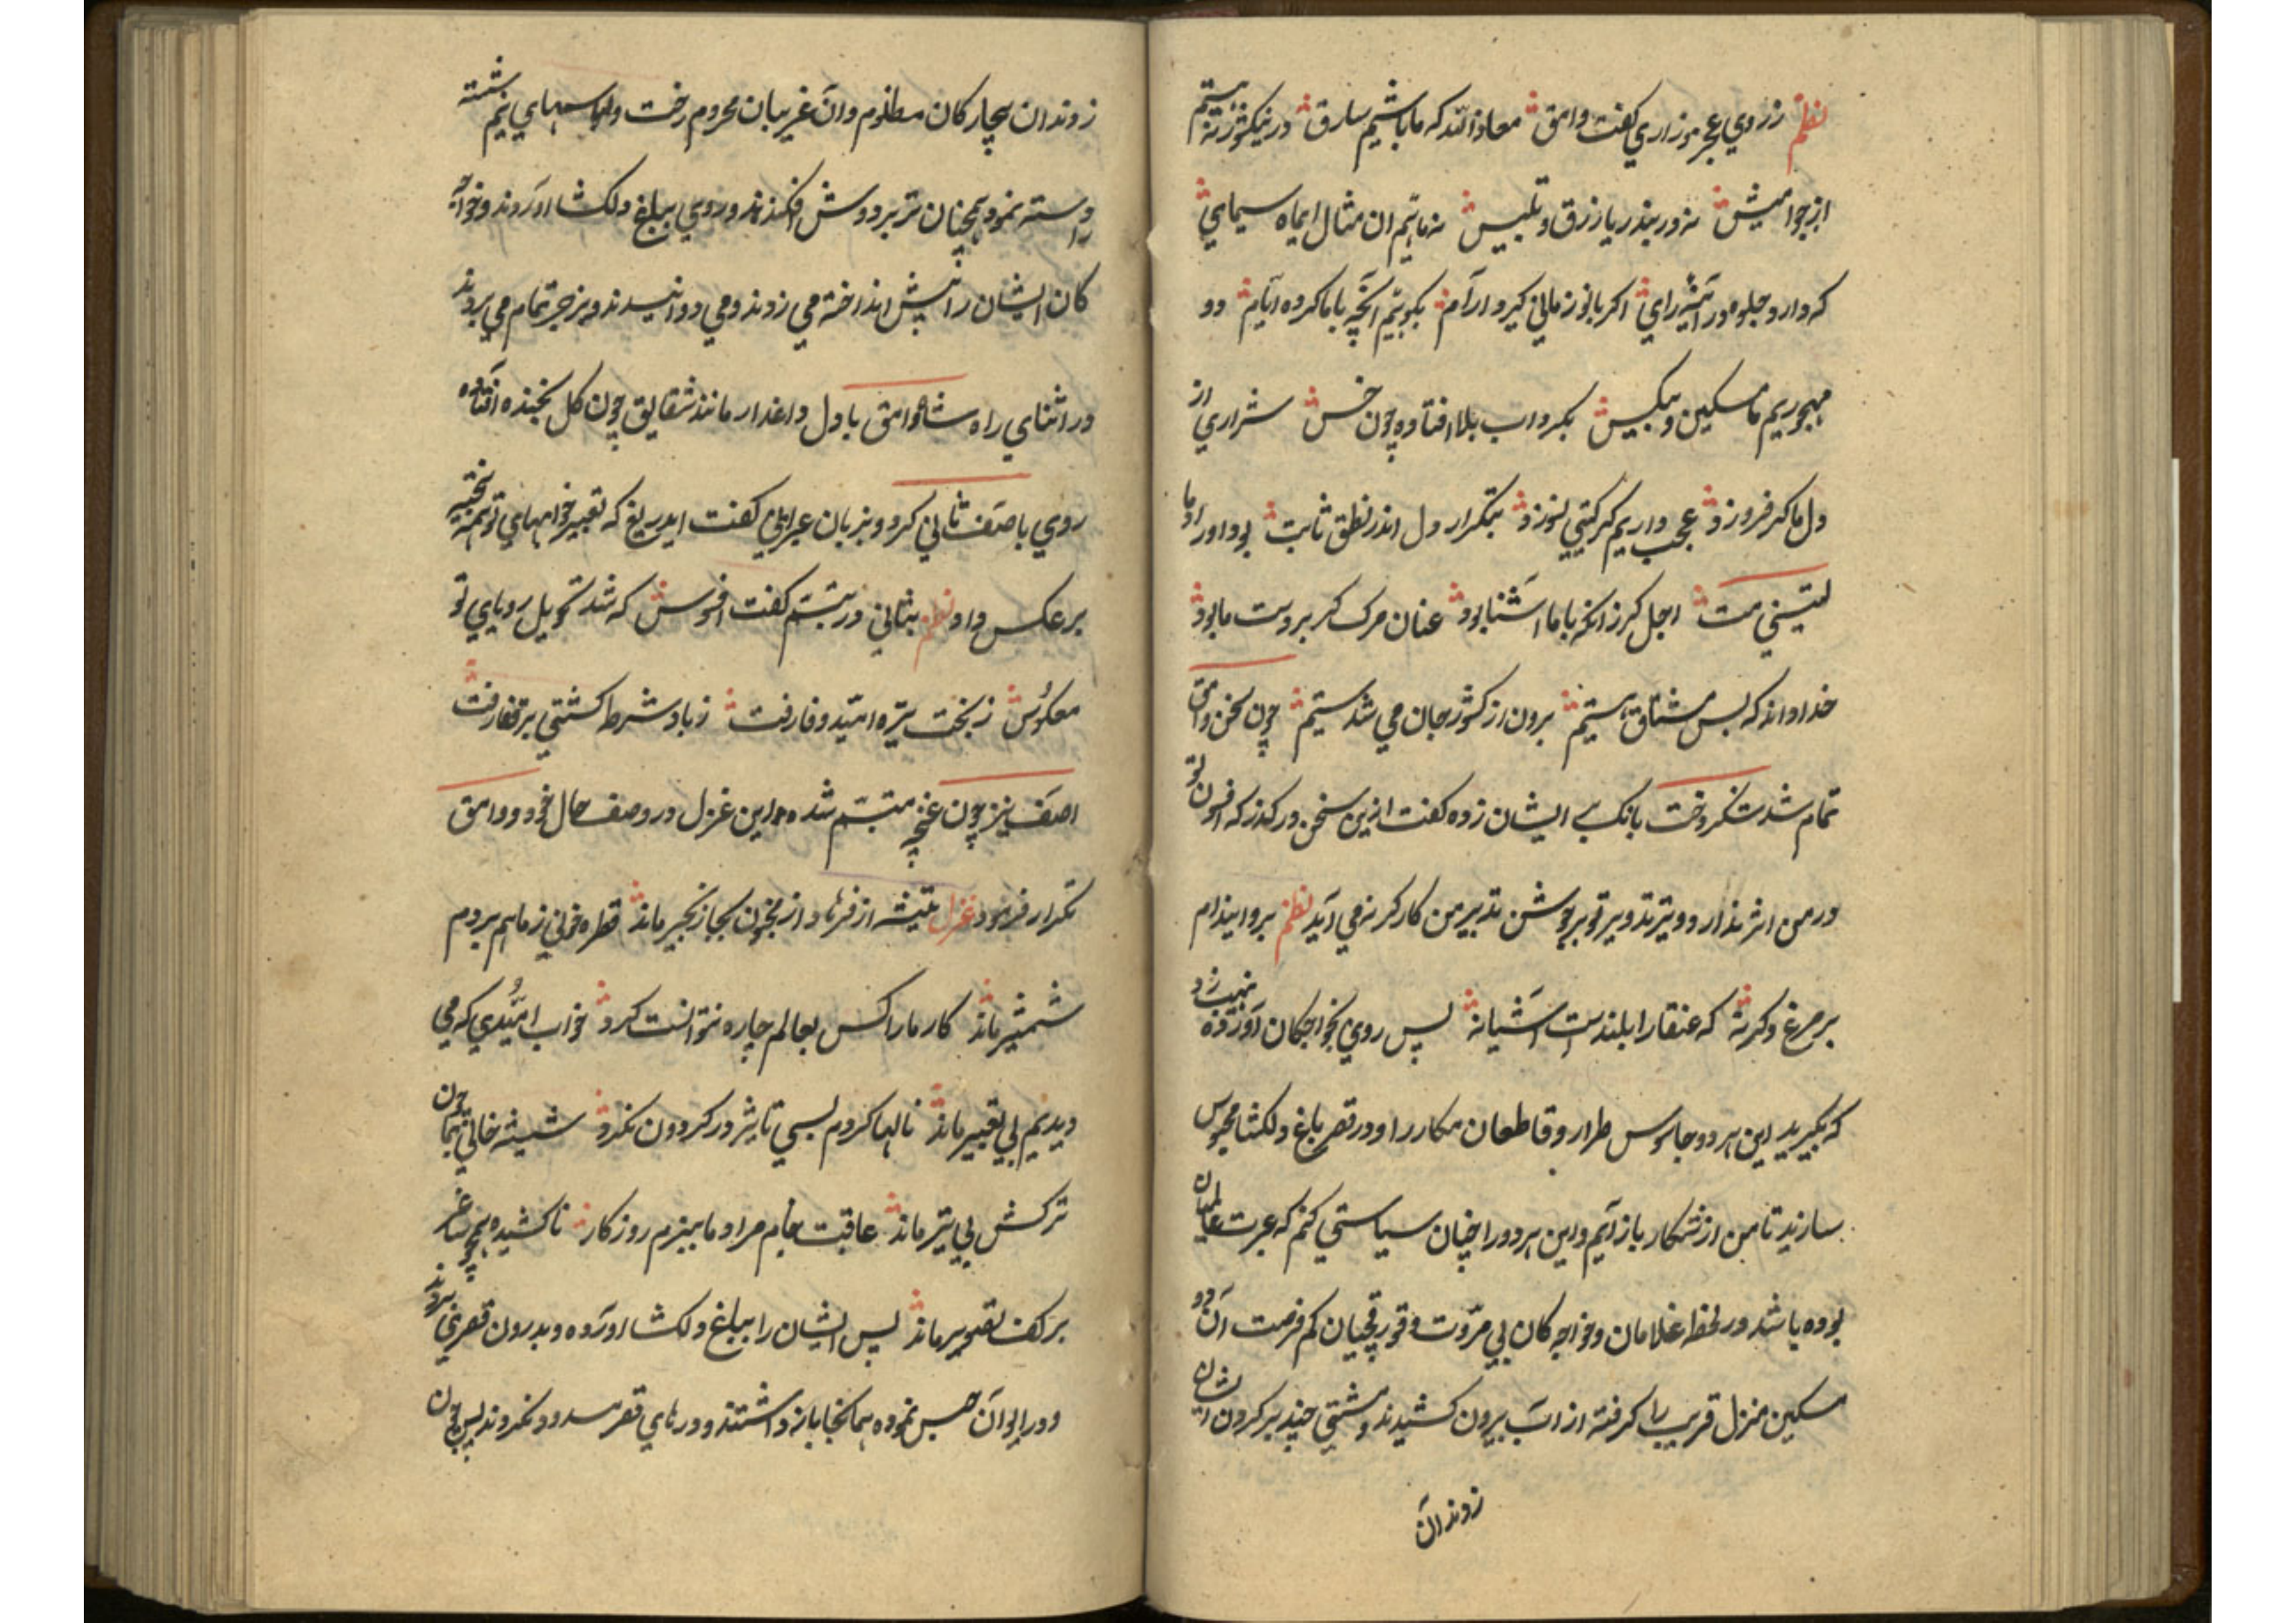 نظم ز روی عجز و زاری گفت وامق معاذ الله که ما باشیم سارق در نیکو نه
از جوامیش نه در بندر یا زرق و تلبیس نه مانیم ان مثال ایماه سیمای
که دارد جلوه در آئینه رای اکر بانو زمانی کیرد آرام بکوئیم آنچه با ما کرده ایام دو
مهجوریم ما مسکین و بیکس بکرداب بلا افتاده چون خس شراری از
دل ما کر فروزد عجب داریم کر کیتی نسوزد بتکرار دل اندر نطق ثابت بود اوراد ما
لیتنی مت اجل کر زانکه با ما آشنا بود عنان مرک کر بر دست ما بود
خدا داند که بس مشتاق هستیم برون از کشور جان می شدستیم چون سخن وامق
تمام شد شکر دخت بانک بر ایشان زده کفت ازین سخن در کذر که افسون تو
در من اثر ندارد و تیر تدویر تو بر جوشن تدبیر من کارکر نمی آید نظم برو این دام
بر مرغ دکر نه که عنقا را بلندست آشیانه پس روی بخواجکان آورده
که بکیرید این هر دو جاسوس طرار و قاطعان مکار را و در قصر باغ دلکشا محبوس
سازید تا من از شکار باز آیم و این هر دو را چنان سیاستی کنم که عبرت عالمیان
بوده باشد در لحظه غلامان و خواجه کان بی مروت و قورقچیان کم فرصت آن دو
مسکین منزل قریب را کرفته از آب بیرون کشیدند و مشتی چند بر کردن ایشان
زدند آن
زدند ان بیچارکان مظلوم و آن غریبان محروم رخت و لباسهای نیم شسته
و نموده همچنان تر بر دوش افکندند و روی بباغ دلکشا آوردند و خواجه
کان ایشان را پیش انداخته می زدند و می دوانیدند و بزجر تمام می بردند
در اثنای راه شاه وامق با دل داغدار مانند شقایق چون کل بخنده افتاده
روی باصف ثانی کرد و بزبان عبرانی کفت ایدریغ که تعبیر خوابهای تو همه نتیجه
بر عکس داد نظم بثانی در تبسم کفت افسوس که شد تحویل رویای تو
معکوس ز بخت تیره امید وفا رفت ز باد شرط کشتی بر قفا رفت
اصف نیز چون غنچه متبسم شده این غزل در وصف حال خود و وامق
تکرار فرمود غزل تیشه از فرهاد از مجنون بجا زنجیر ماند قطره خونی ز ما هم بر دم
شمشیر ماند کار ما را کس بعالم چاره نتوانست کرد خواب امیدی که می
دیدیم بی تعبیر ماند نالها کردم بسی تاثیر در کردون نکرد شیشه خالی چون
ترکش بی تیر ماند عاقبت جام مراد ما ببزم روزکار ناکشیده همچو ساغر
بر کف تصویر ماند پس ایشان را بباغ دلکشا آورده و بدرون قصر بردند
و در ایوان حبس نموده همانجا باز داشتند و درهای قصر مسدود نکردند پس چون